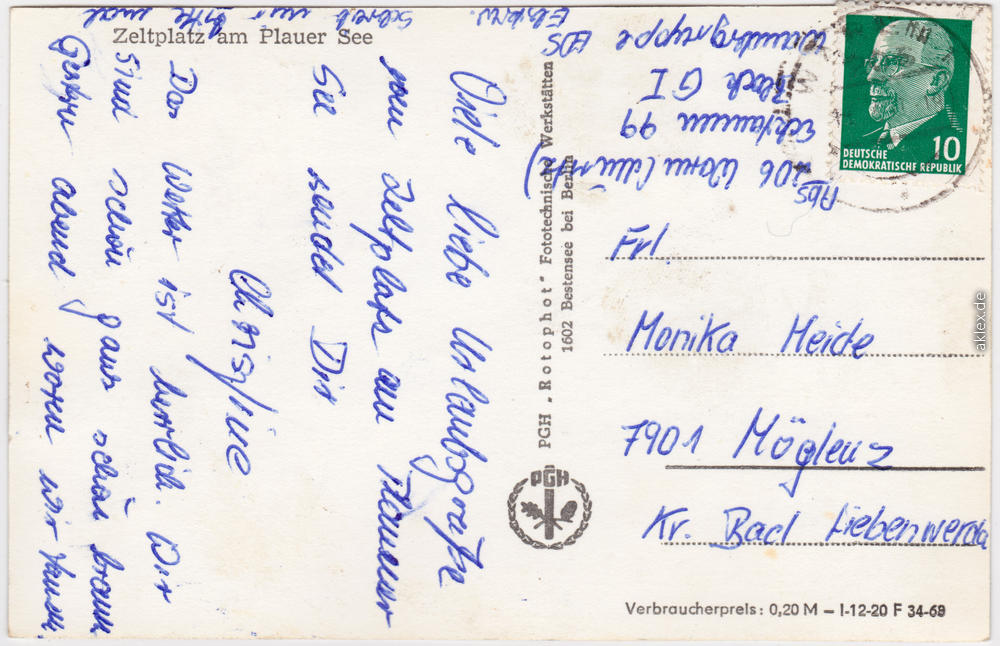 Zeltplatz am Plauer See
Viele liebe Urlaubsgrüße
vom Zeltplatz am Plauer
See sendet Dir
Christine
Das Wetter ist herrlich. Wir
sind schon ganz schön braun
Gestern abend waren wir
schreib mir bitte mal
PGH „Rotophot" Fototechnische Werkstätten
1602 Bestensee bei Berlin
PGH
Abs
Block G I
DEUTSCHE
DEMOKRATISCHE REPUBLIK
10
Frl.
Monika Heide
7901 Möglenz
Kr. Bad Liebenwerda
Verbraucherpreis: 0,20 M – I-12-20 F 34-69
aklex.de